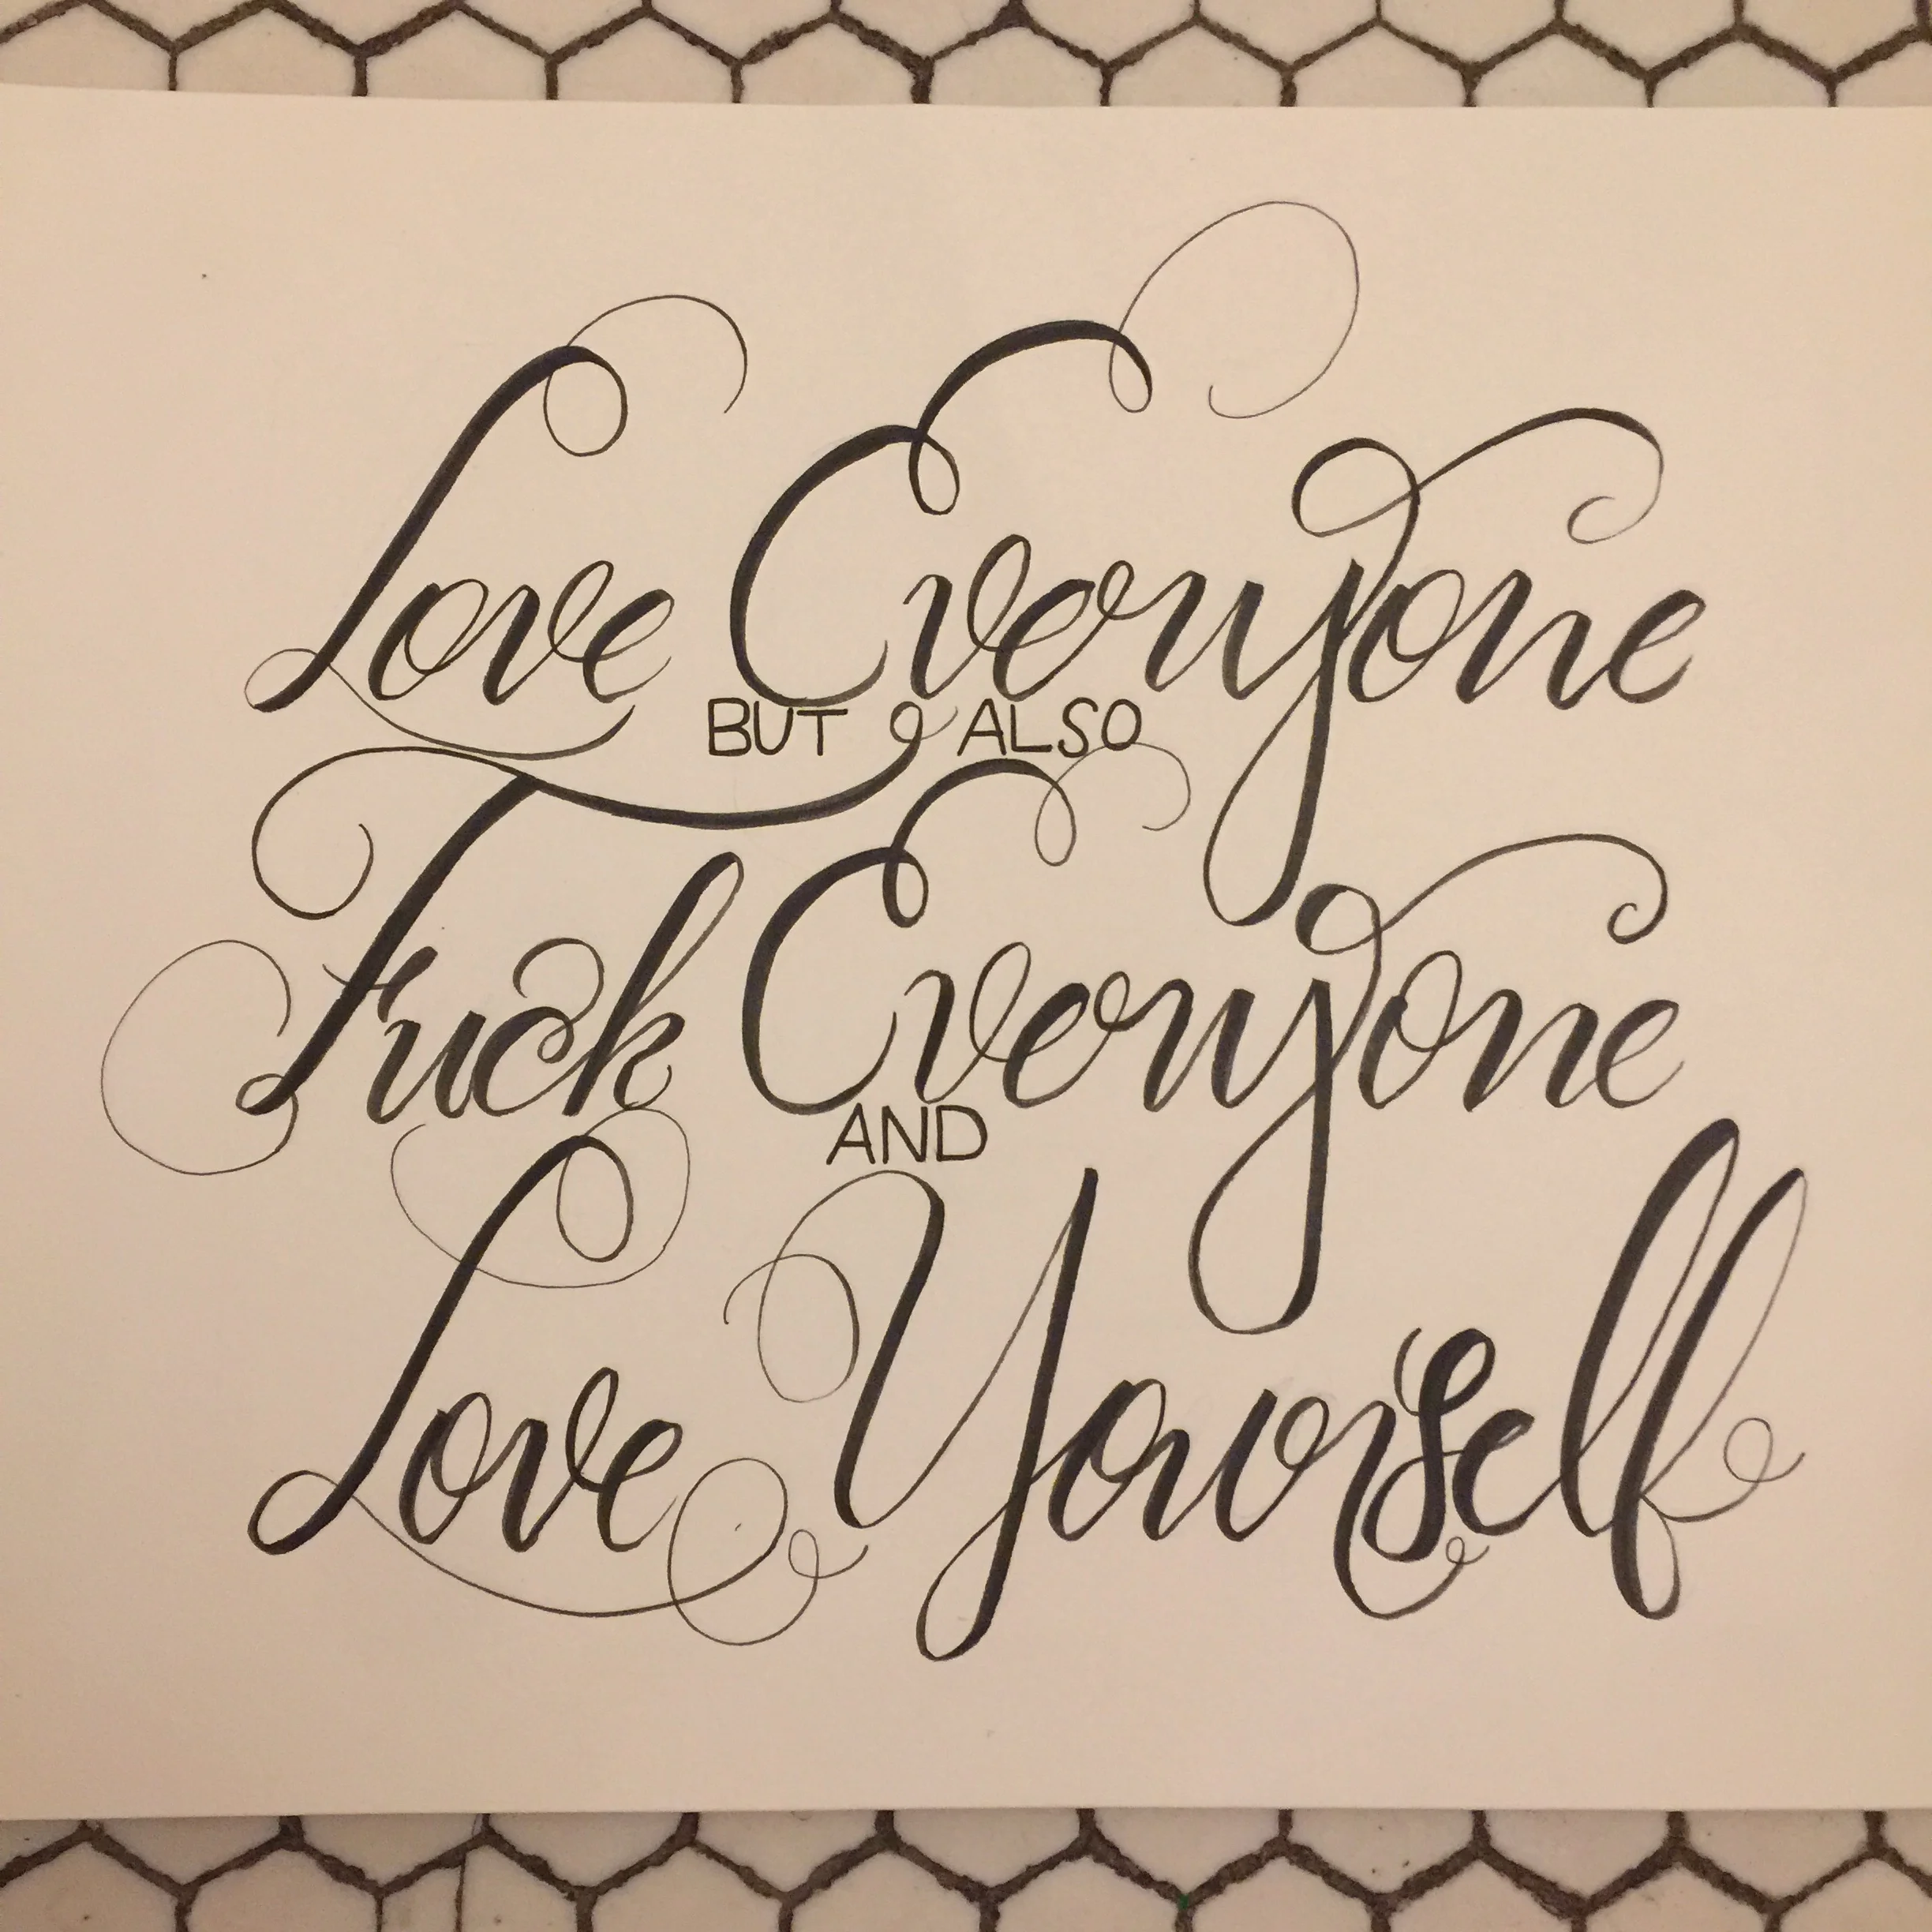 Love Everyone
BUT ALSO
Fuck Everyone
AND
Love Yourself